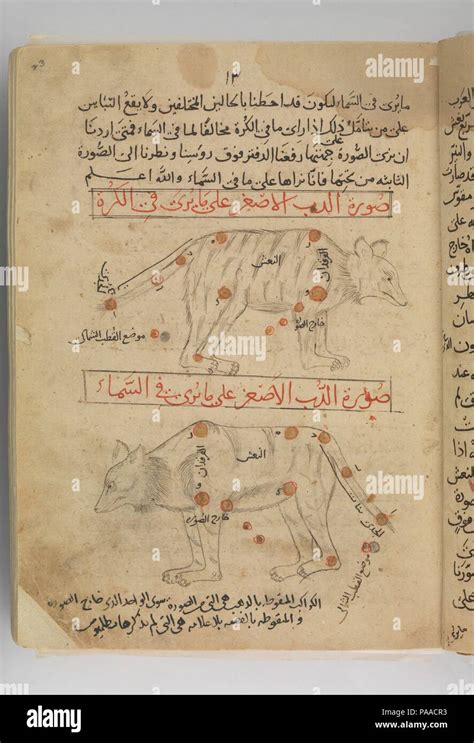 ١٣
ما يرى في السماء ليكون قد احطنا بالحالين المختلفين ولا يقع التباين
على من يتأمل ذلك اذا راى ما في الكرة مخالفا لما في السماء فمتى اردنا
ان نرى الصورة على جهتها رفعنا الدفتر فوق روسنا ونظرنا الى الصورة
الثانية من تحتها فانا نراها على ما في السماء والله اعلم
صورة الدب الاصغر على ما يرى في الكرة
النعش
الفرقدان
خارج الصورة
موضع القطب الشمالى
صورة الدب الاصغر على ما يرى في السماء
النعش
الفرقدان
خارج الصوره
الجدى
موضع القطب الشمالى
الكواكب المنقوطه بالذهب هى التى من الصورة سوى الواحد الذى خارج الصوره
والمنقوطه بالفضه بلا علامه هى التى لم يذكرها بطلميوس
alamy
Image ID: PAACR3
www.alamy.com